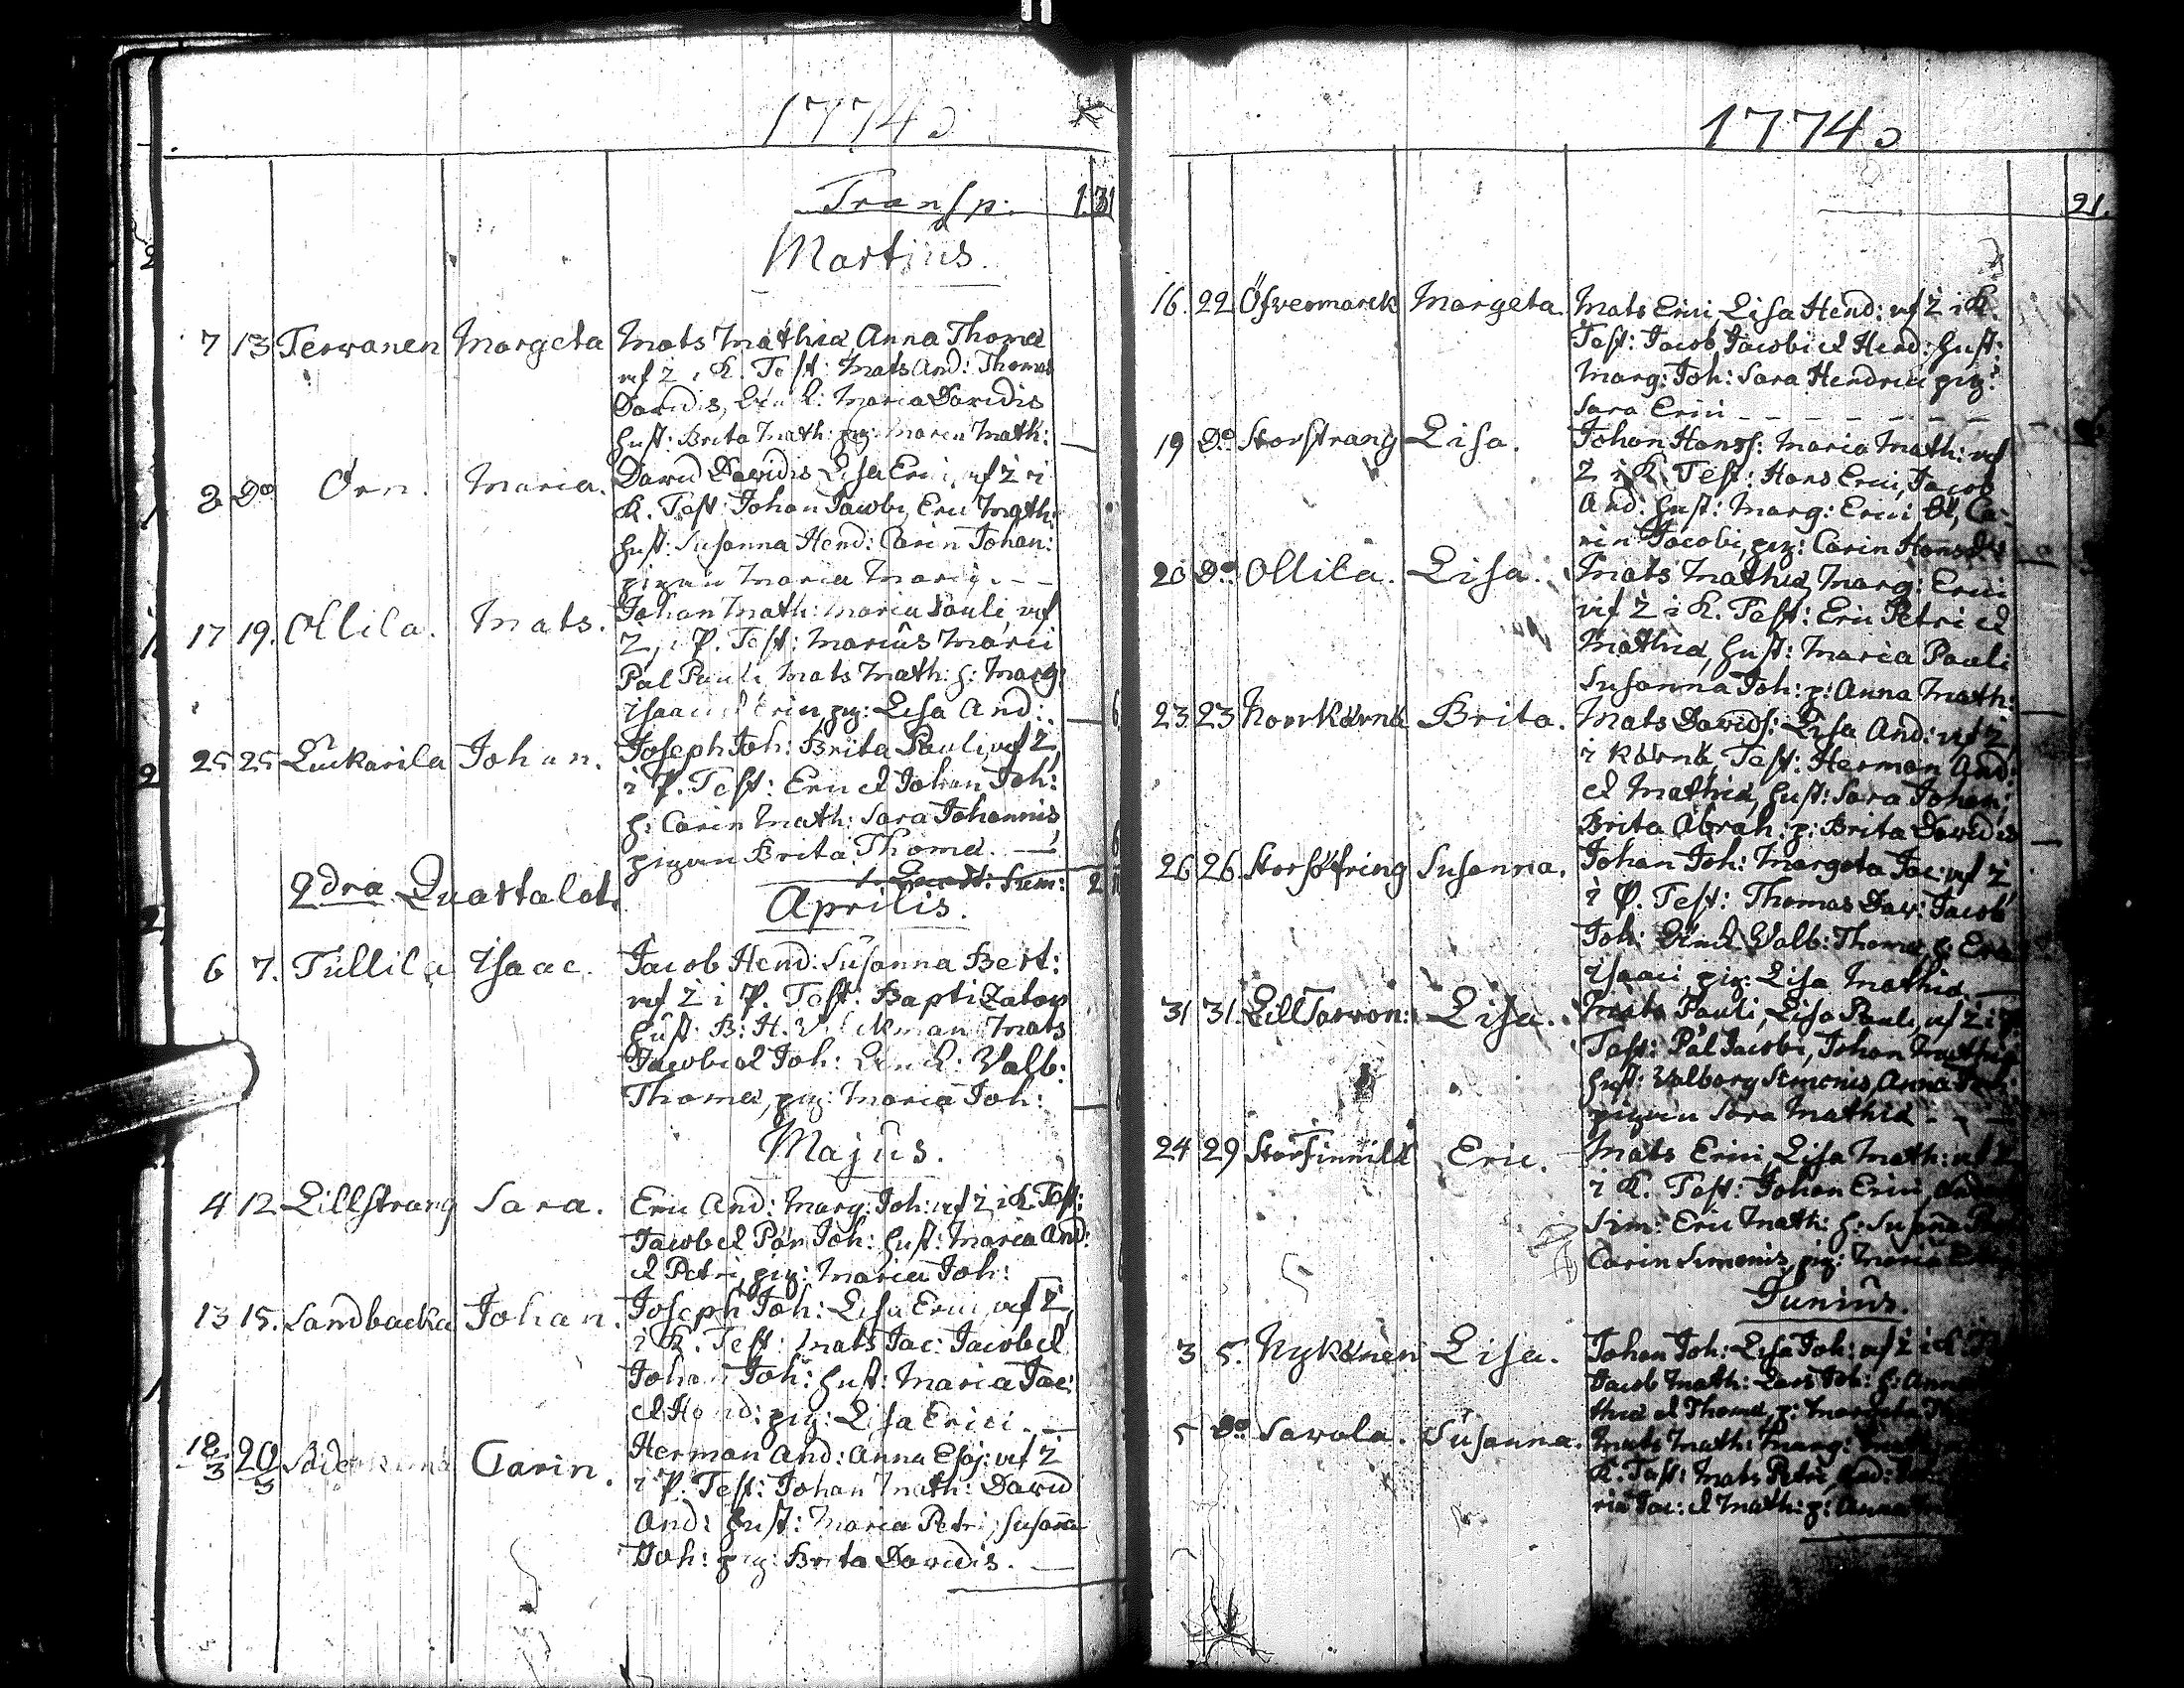 1774
Transp: 1 31
Martius.
7 13 Terwanen Margeta Mats Mathiæ Anna Thomæ
uf 2 i K. Test: Mats And: Thomas
Davidis, Maria Davidis
hust: Brita Math: pig: Maria Math:
8 Do Örn. Maria. David Davidis Lisa Erici, uf 2 i
K. Test: Johan Jacobi, Eric Math:
hust: Susanna Hend: Carin Johan:
pigan Maria Marci. - -
17 19. Ollila. Mats. Johan Math: Maria Pauli, uf
2, i P. Test: Marcus Marci
Pål Pauli Mats Math: h: Marg:
Isaaci et Erici, pig: Lisa And:
25 25 Luckarila Johan. Joseph Joh: Brita Pauli, uf 2,
i P. Test: Eric et Johan Joh:
h: Carin Math: Sara Johannis,
pigan Brita Thomæ. —
Sum: 2
2dra Quartalet.
Aprilis.
6 7. Tullila Isaac. Jacob Hend: Susanna Bert:
uf 2 i P. Test: Baptizator
hust: B: H. Mats
Jacobi et Joh: Valb:
Thomæ, pig: Maria Joh:
Majus.
4 12 Lillstrang Sara. Eric And: Marg: Joh: uf 2 i K. Test:
Jacob et Pär Joh: hust: Maria And:
et Petri, pig: Maria Joh:
13 15. Sandbacka Johan. Joseph Joh: Lisa Erici, uf 2,
i K. Test: Mats Jac: Jacob et
Johan Joh: hust: Maria Jac:
et Hend: pig: Lisa Erici. —
18/3 20/3 Carin. Herman And: Anna Esaj: uf 2
i P. Test: Johan Math: David
And: hust: Maria Petri, Susanna
Joh: pig: Brita Davidis. —
1774
21.
16. 22 Öfvermarck Margeta. Mats Erici, Lisa Hend: uf 2 i K.
Test: Jacob Jacobi et Hend: hust:
Marg: Joh: Sara Hendrici pig:
Sara Erici - - - - - -
19 Do Storstrang Lisa. Johan Hanss: Maria Math: uf
2 i K. Test: Hans Erici, Jacob
And: hust: Marg: Erici, Ca-
rin Jacobi, pig: Carin Hansdr
20 Do Ollila. Lisa. Mats Mathiæ, Marg: Erici
uf 2 i K. Test: Eric Petri et
Mathiæ, hust: Maria Pauli
Susanna Joh: p: Anna Math:
23 23 Norrkårnå Brita. Mats Davids: Lisa And: uf 2,
i kårnå, Test: Herman And:
et Mathiæ, hust: Sara Johan:
Brita Abrah: p: Brita Davidis
26 26 Susanna. Johan Joh: Margeta Jac: uf 2,
i P. Test: Thomas Dav: Jacob
Joh: Valb: Thomæ,
Isaaci, pig: Lisa Mathiæ. —
31 31. Lill Tarvon: Lisa. Mats Pauli, Lisa Pauli, uf 2 i P.
Test: Pål Jacobi, Johan Mathiæ
hust: Valborg Simonis, Anna
pigan Sara Mathiæ - -
24 29 Eric. Mats Erici, Lisa Math: uf 2
i K. Test: Johan Erici,
Sim: Eric Math: h: Susanna
Carin Simonis, pig: Maria
Junius.
3 5. Nykänen Lisa. Johan Joh: Lisa Joh: uf 2 i K
Jacob Math: Lars Joh: h: Anna
thiæ et Thomæ, p: Margeta
5 Do Savola. Susanna. Mats Math: Marg:
K. Test: Mats Petri, And:
ria Jac: et Math: p: Anna